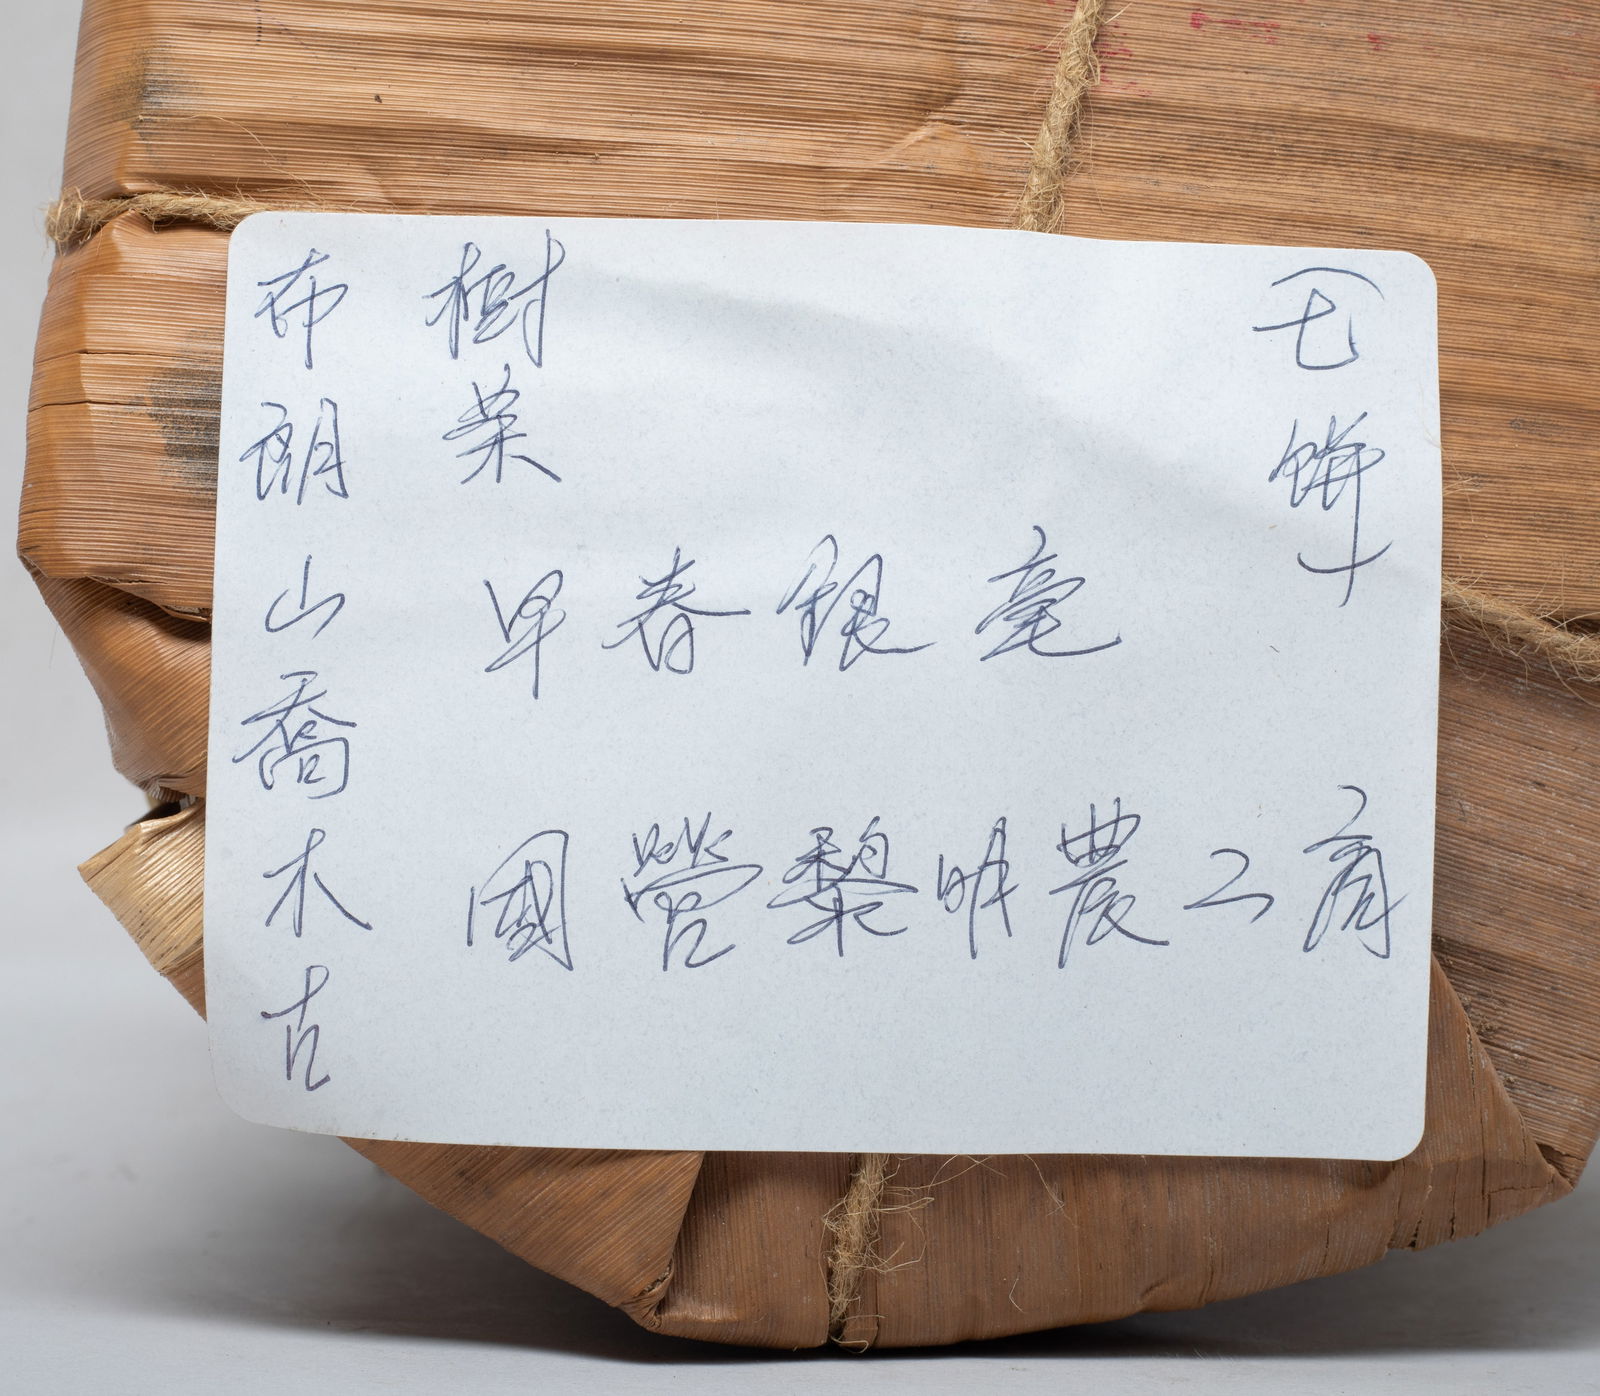 布朗山喬木古
樹茶
早春銀毫
國營黎明農工商
（七餅）